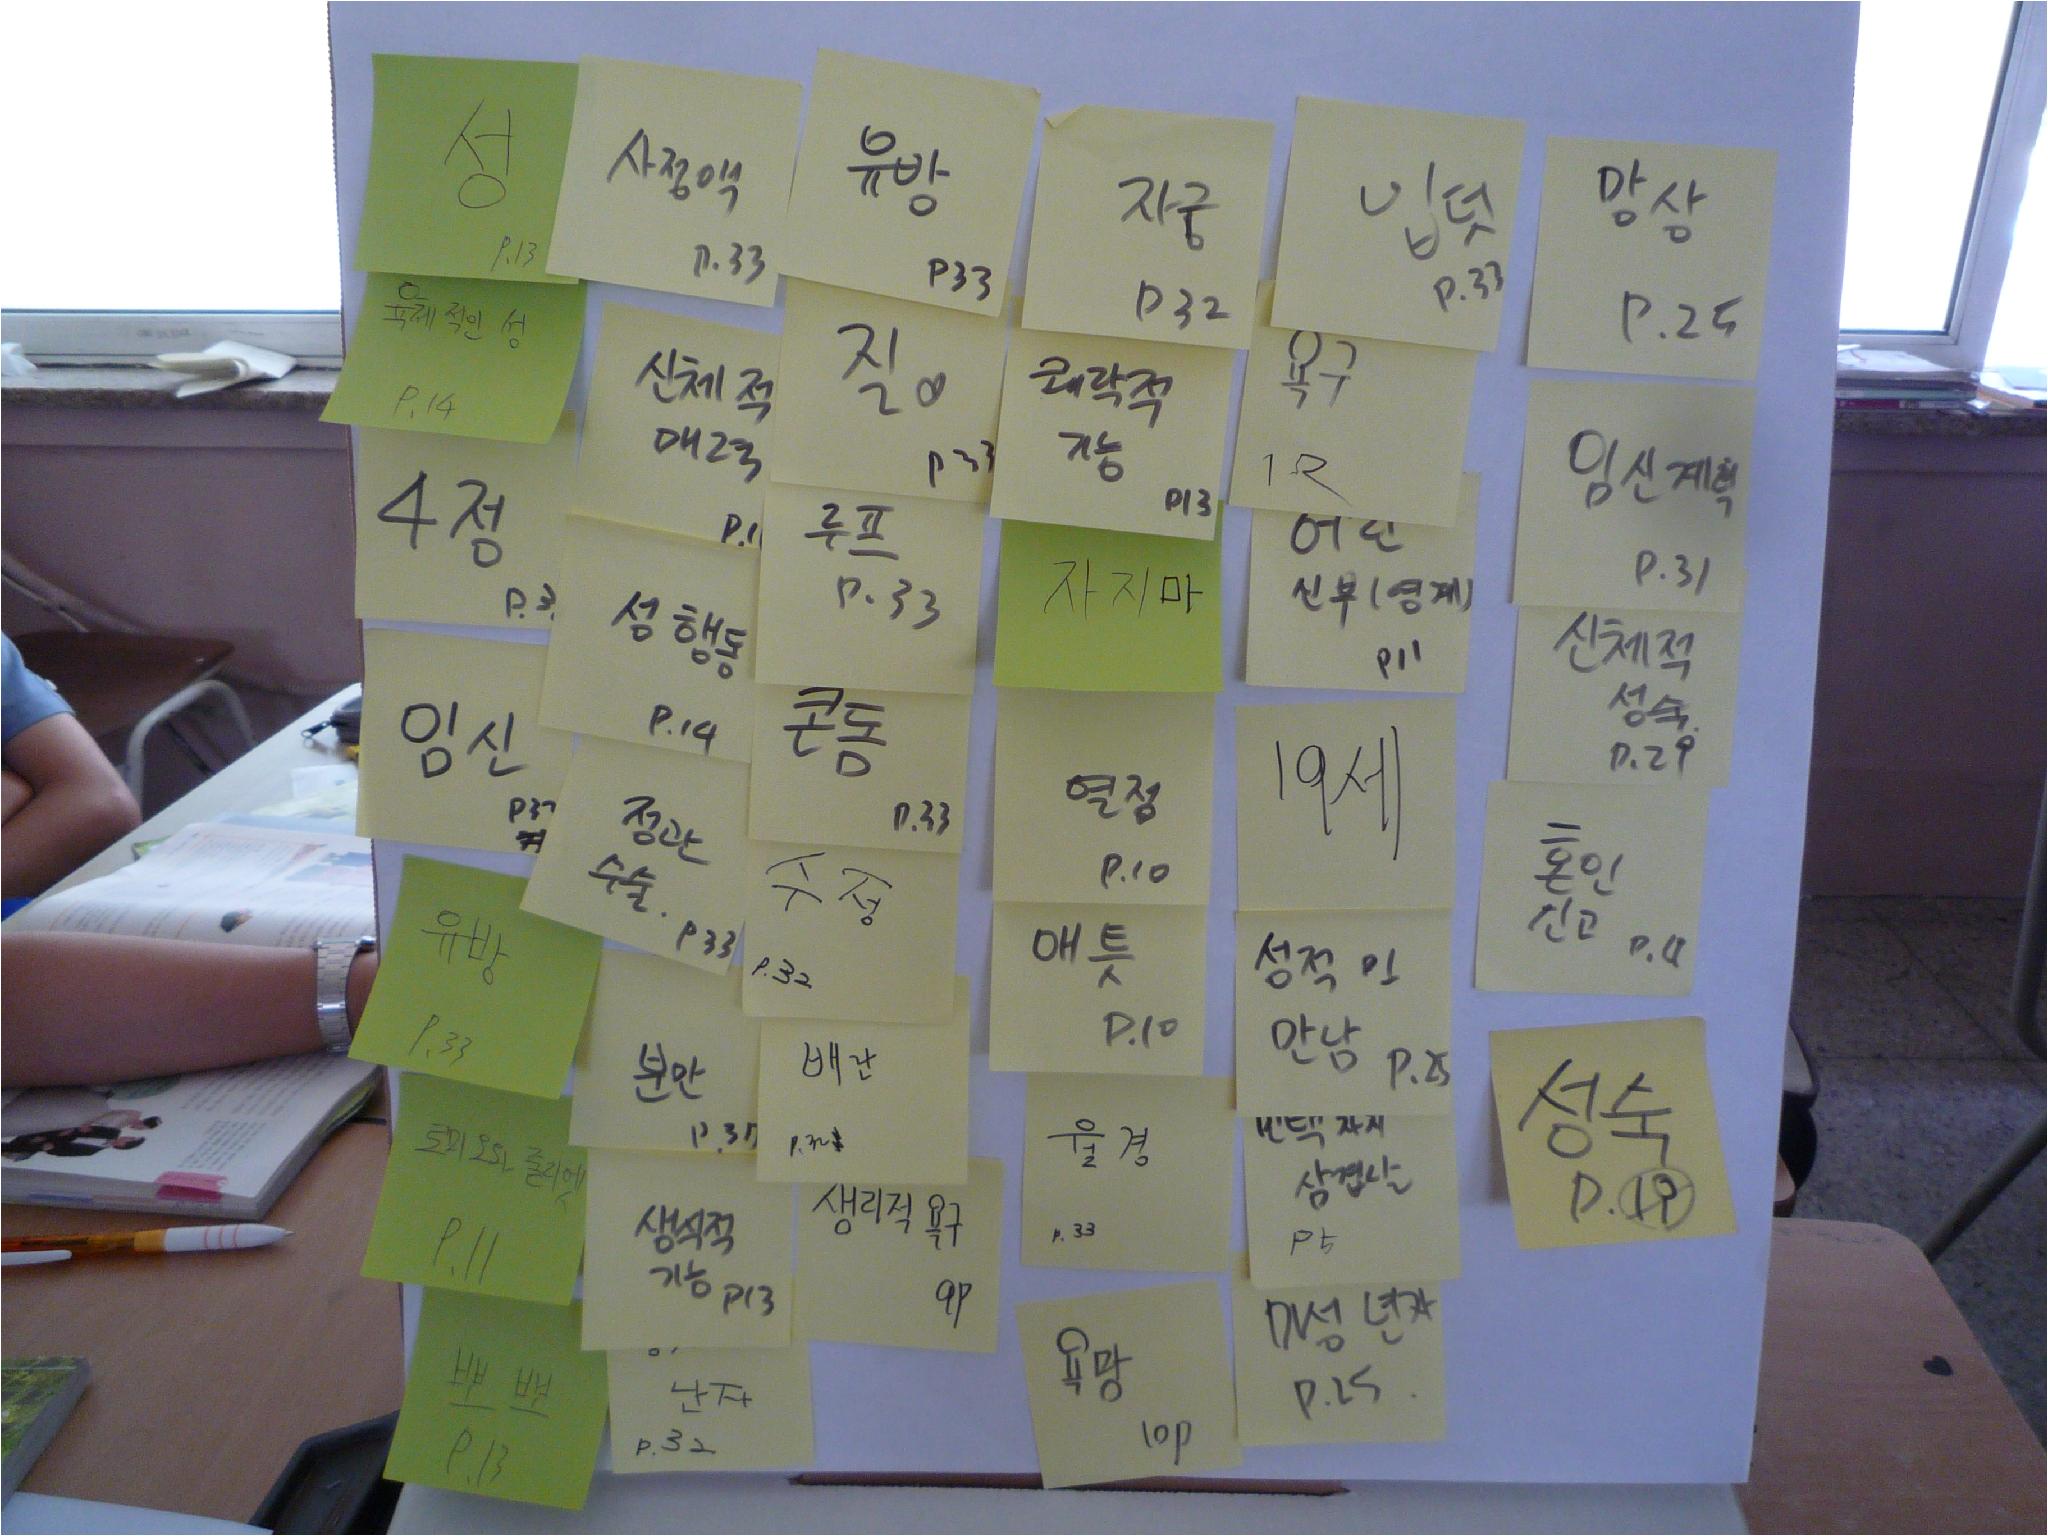 성
P.13
육체적인 성
P.14
4정
P.3
임신
P37
유방
P.33
로미오와 줄리엣
P.11
뽀뽀
P.13
사정액
P.33
신체적
매력
P.1
성행동
P.14
정관
수술.
P33
분만
P.37
생식적
기능 P13
난자
P.32
유방
P33
질
P33
루프
P.33
콘돔
P.33
수정
P.32
배란
생리적 욕구
9P
자궁
P32
쾌락적
기능
P13
자지마
열정
P.10
애틋
P.10
월경
P.33
욕망
10P
입덧
P.33
욕구
어린
신부(영계)
P11
19세
성적인
만남 P.25
빈털 자지
삼겹살
P5
미성년자
P.25.
망상
P.25
임신계획
P.31
신체적
성숙.
P.29
혼인
신고 P.11
성숙
P.19